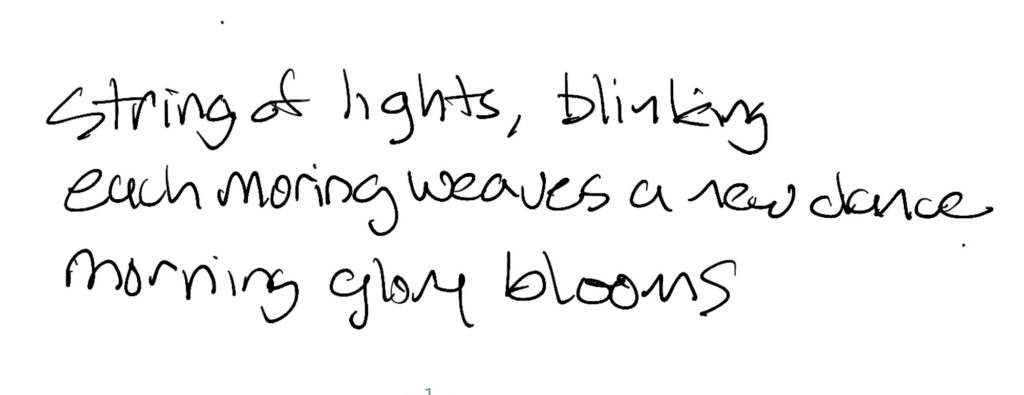 string of lights, blinking
each moring weaves a new dance
morning glory blooms
1